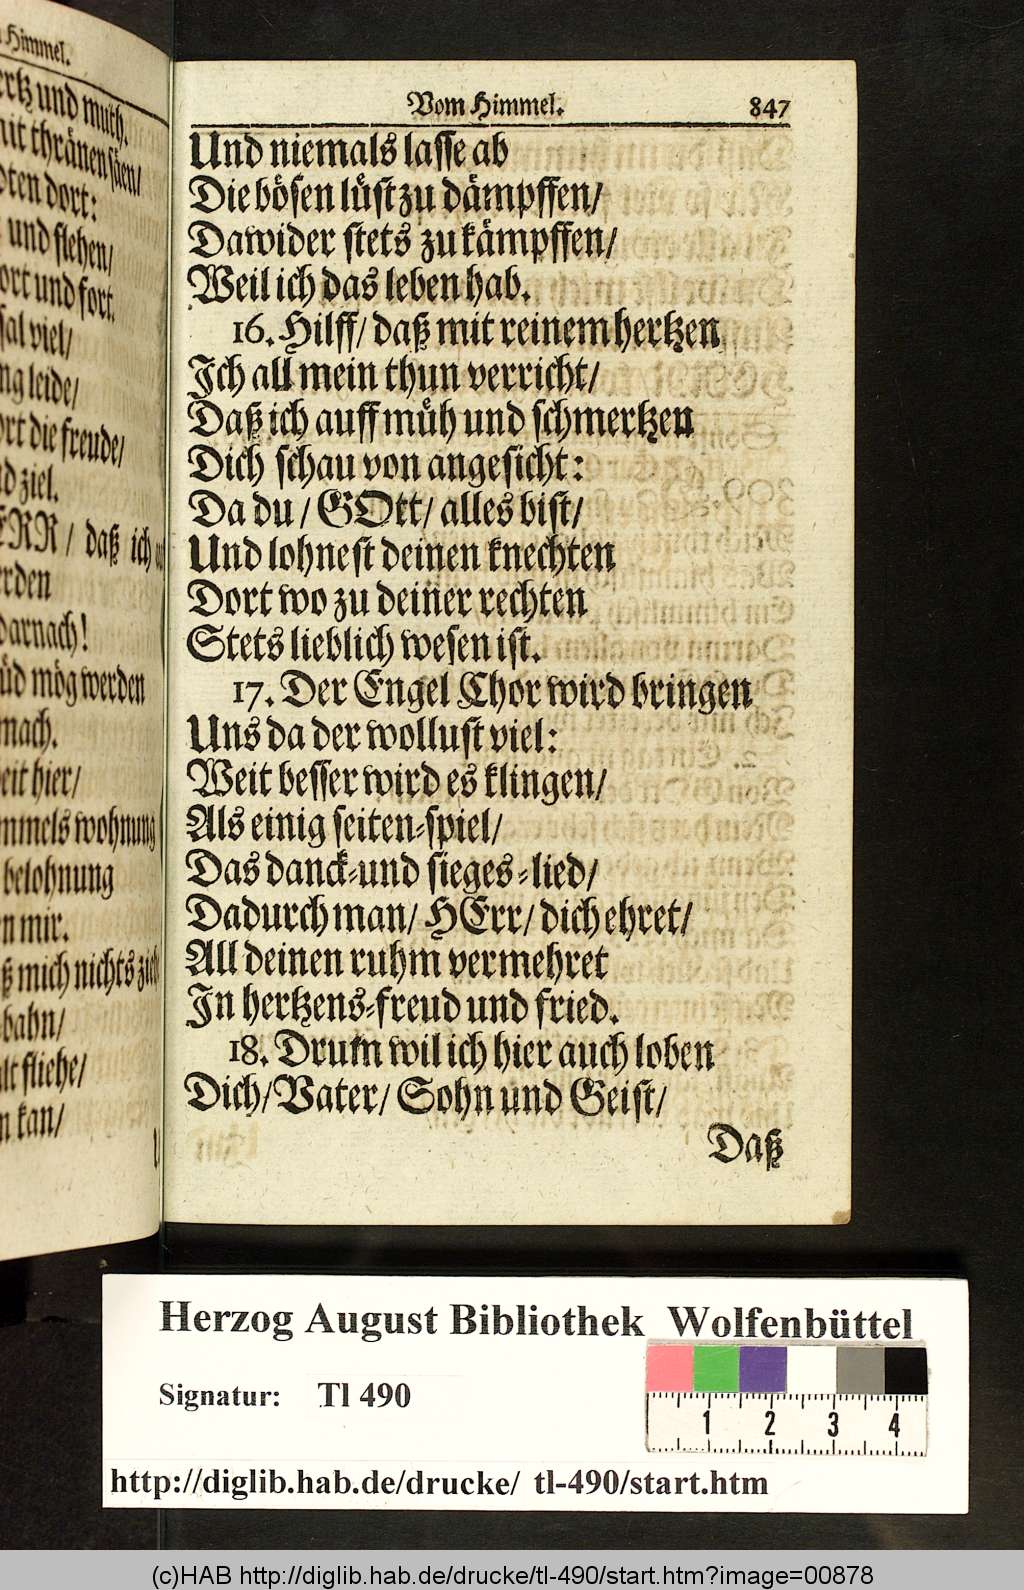 Himmel.
und muth.
mit thränen säen/
dort:
und flehen/
und fort.
viel/
leide/
die freude/
ziel.
/ daß ich
darnach!
mög werden
hier/
wohnung
belohnung
mir.
mich nichts
bahn/
fliehe/
kan/
Vom Himmel. 847
Und niemals lasse ab
Die bösen lüst zu dämpffen/
Dawider stets zu kämpffen/
Weil ich das leben hab.
16. Hilff/ daß mit reinem hertzen
Ich all mein thun verricht/
Daß ich auff müh und schmertzen
Dich schau von angesicht:
Da du/ GOtt/ alles bist/
Und lohnest deinen knechten
Dort wo zu deiner rechten
Stets lieblich wesen ist.
17. Der Engel Chor wird bringen
Uns da der wollust viel:
Weit besser wird es klingen/
Als einig seiten-spiel/
Das danck-und sieges-lied/
Dadurch man/ HErr/ dich ehret/
All deinen ruhm vermehret
In hertzens-freud und fried.
18. Drum wil ich hier auch loben
Dich/ Vater/ Sohn und Geist/
Daß
Herzog August Bibliothek Wolfenbüttel
Signatur: Tl 490
1 2 3 4
http://diglib.hab.de/drucke/ tl-490/start.htm
(c)HAB http://diglib.hab.de/drucke/tl-490/start.htm?image=00878